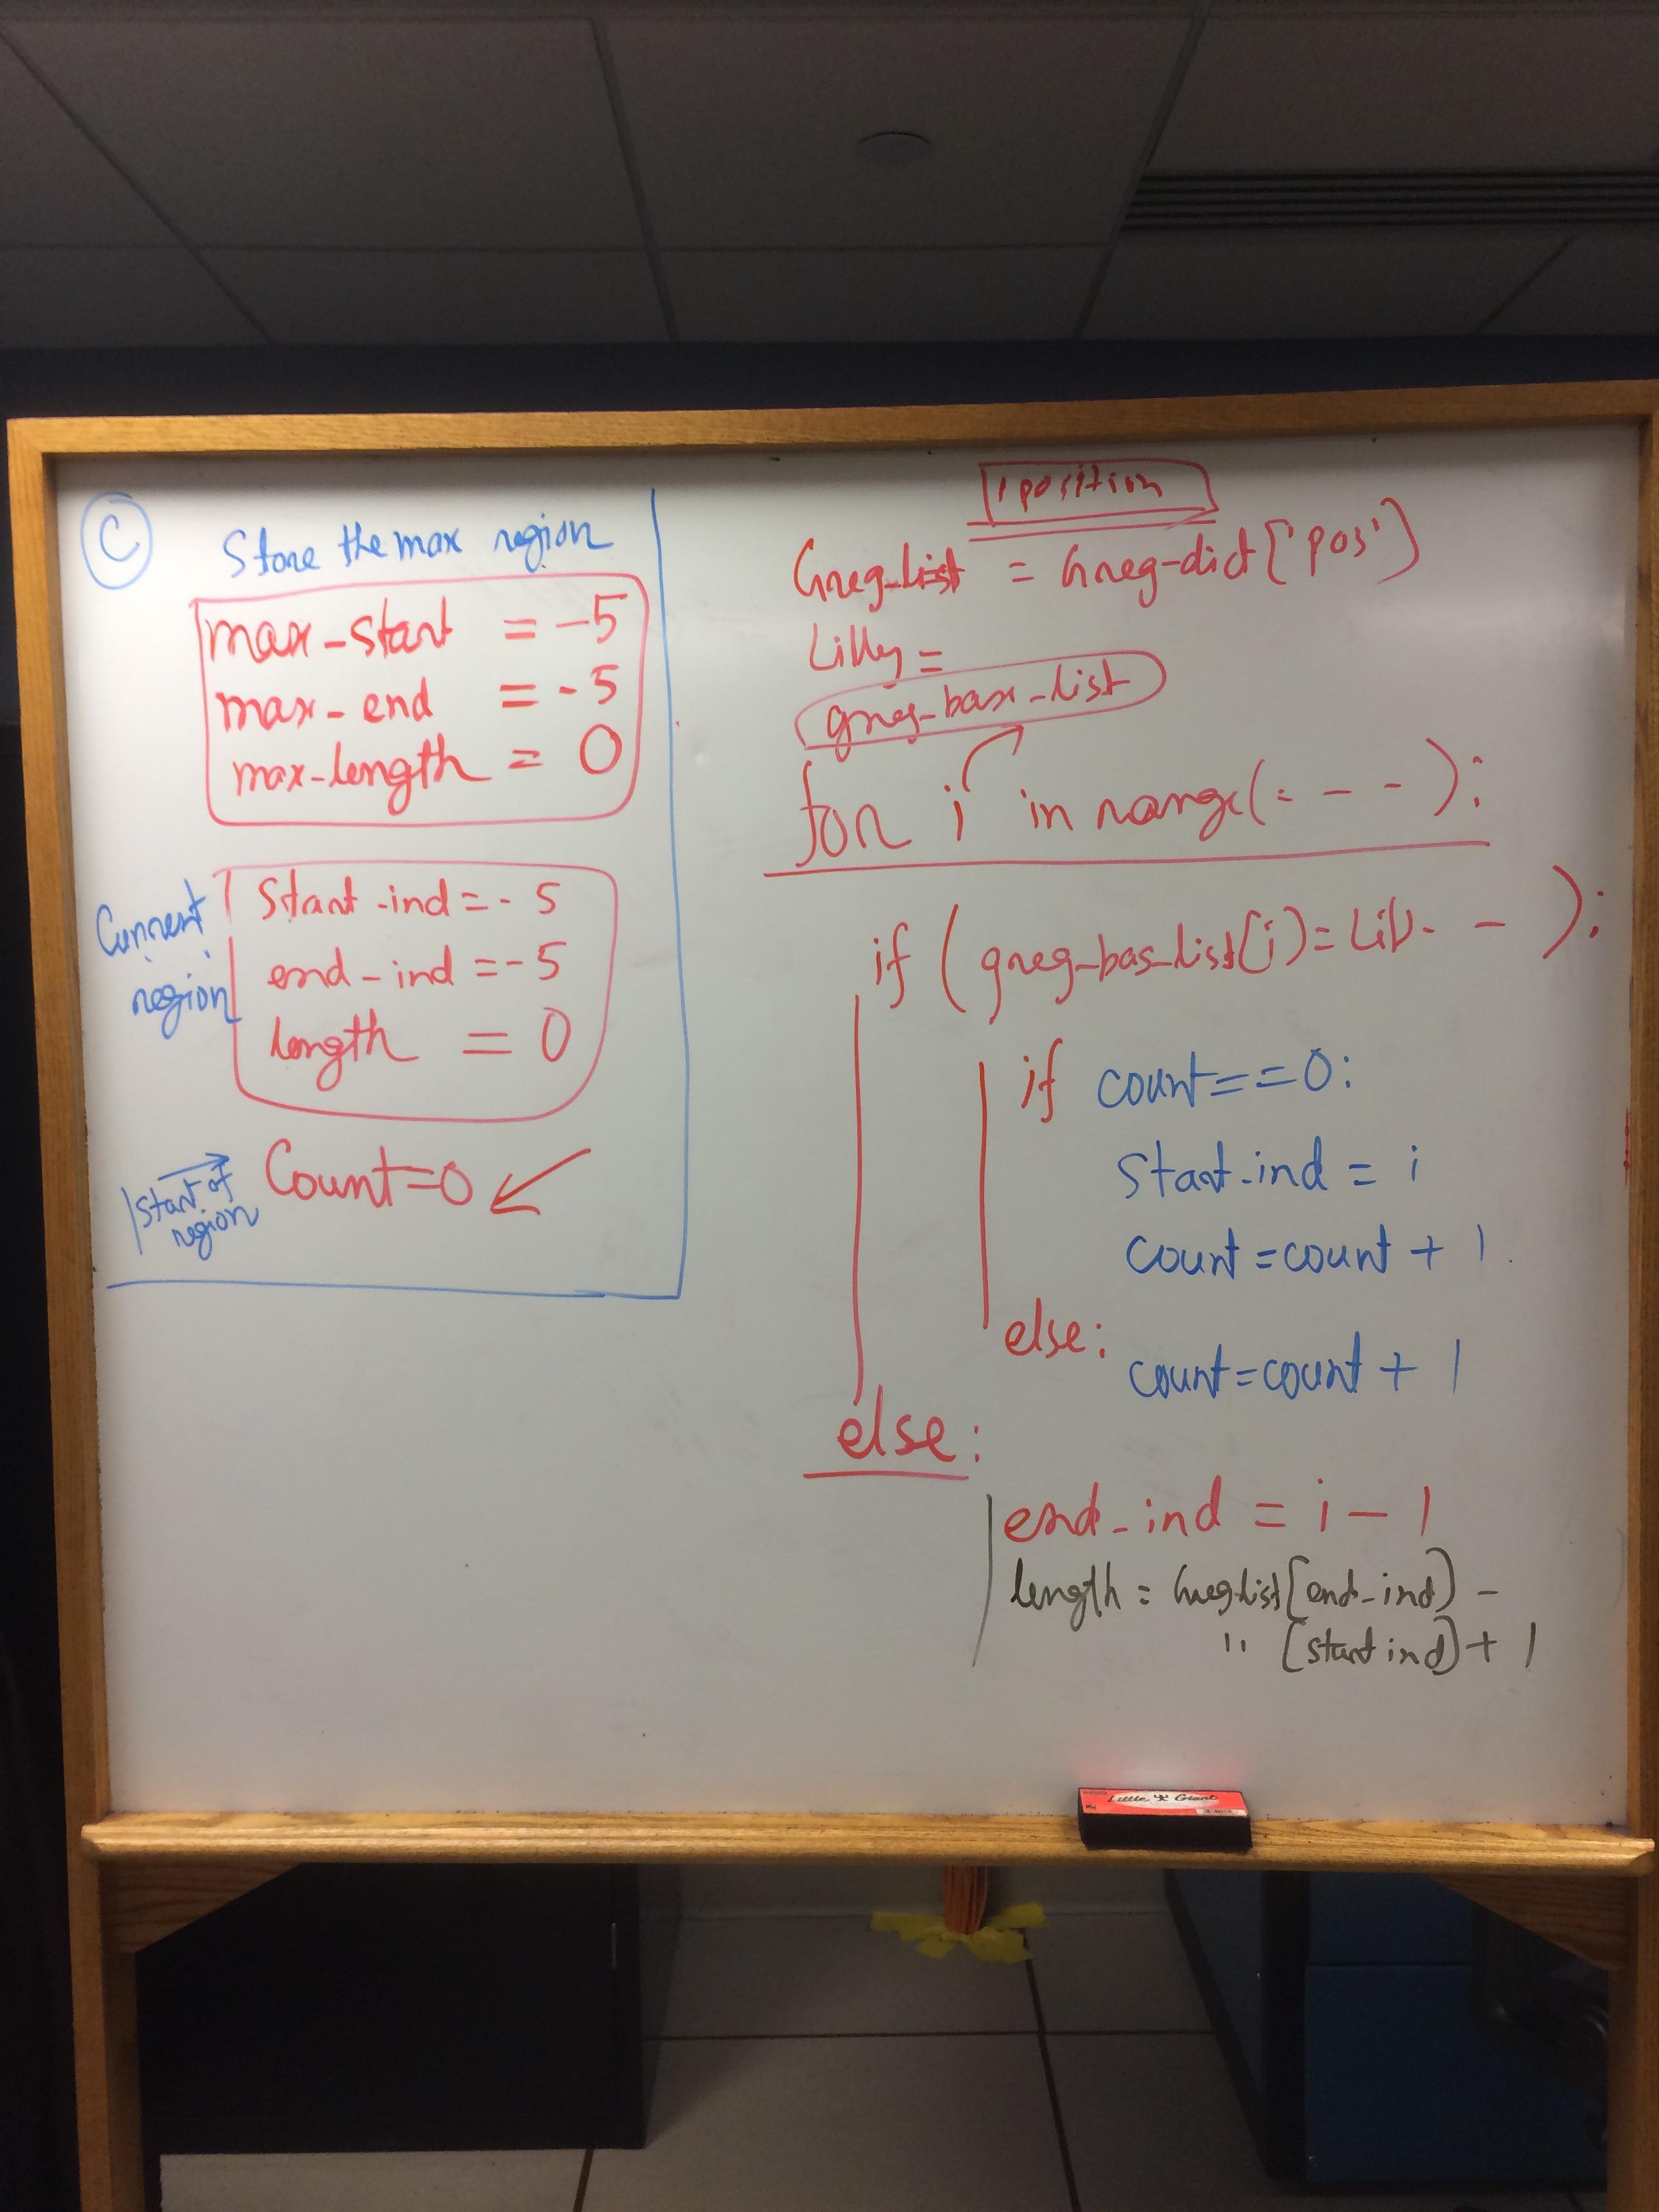 C
Store the max region
max_start = -5
max_end = -5
max_length = 0
Current region
Start_ind = -5
end_ind = -5
length = 0
Start of region
Count=0
position
Greg_List = Greg-dict['pos']
Lilly =
greg_base_list
for i in range(= - - ):
if ( greg_bas_list[i] = Lil- - ):
if count==0:
Start_ind = i
count=count + 1
else:
count=count + 1
else:
end_ind = i - 1
length = Greglist[end_ind] -
" [start ind] + 1
Little Giant